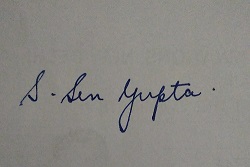 S. Sen Gupta.